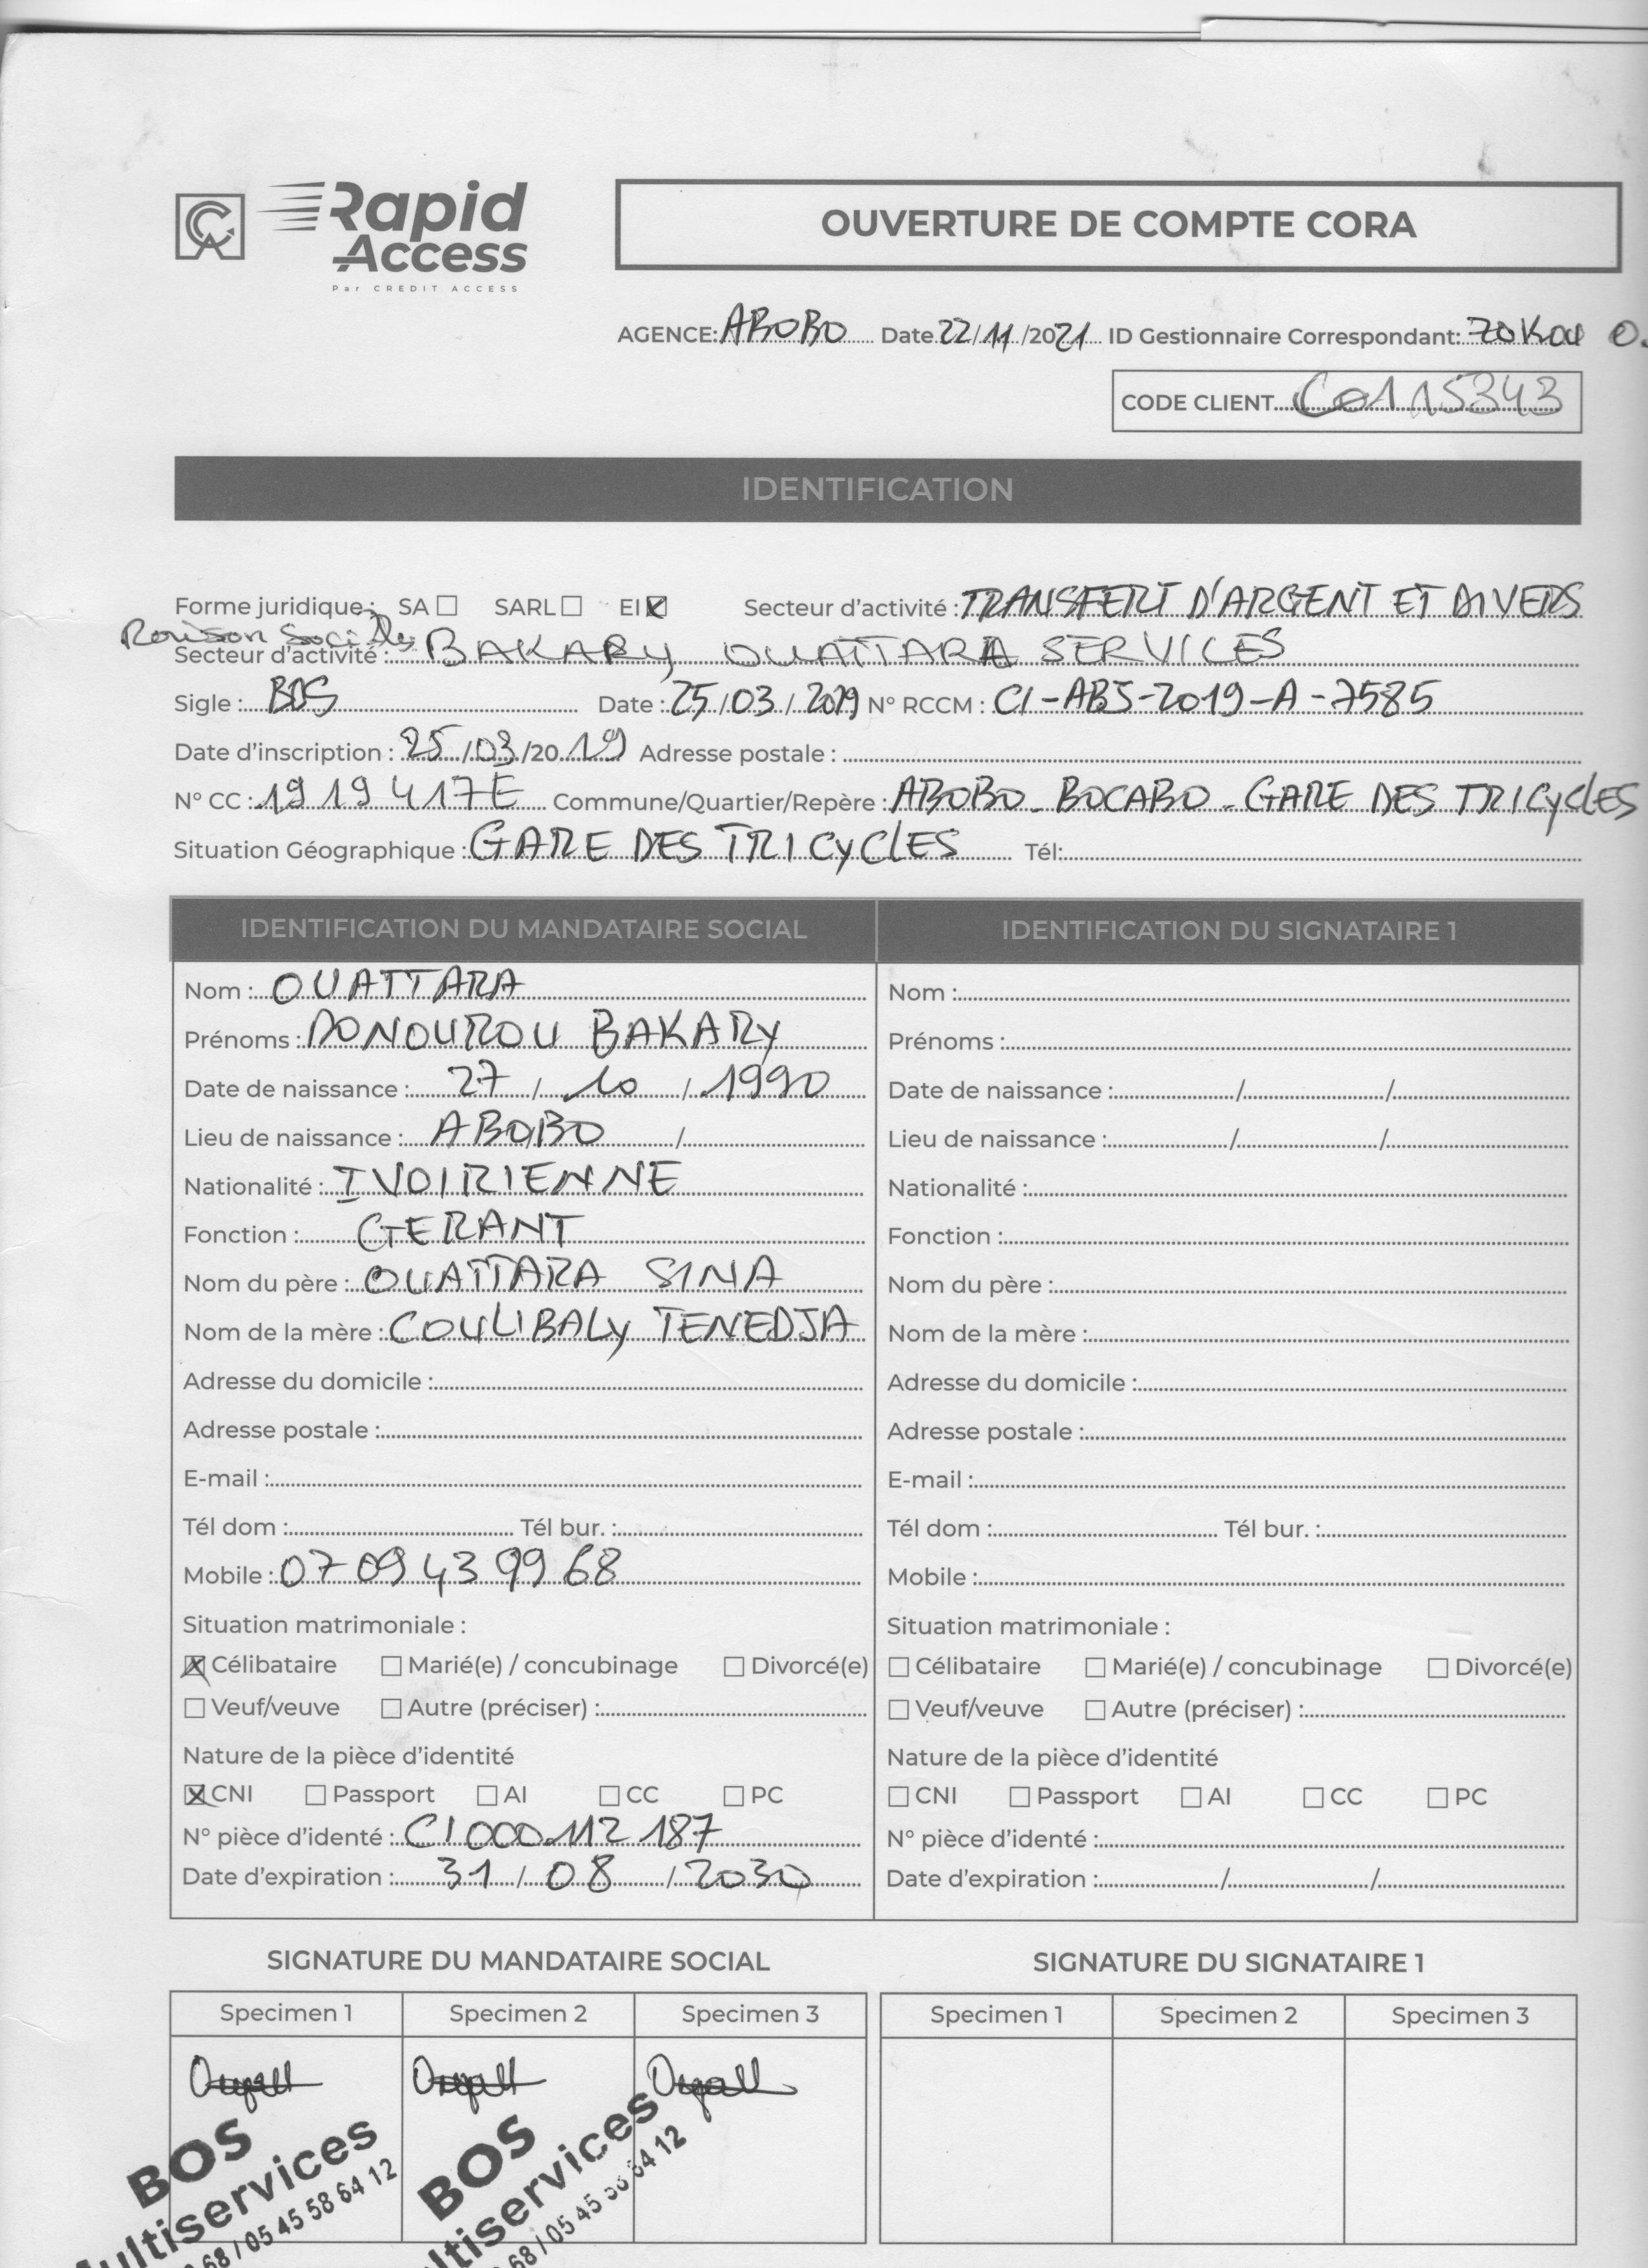 Rapid
Access
Par CREDIT ACCESS
OUVERTURE DE COMPTE CORA
AGENCE: ABOBO Date 22/11/2021 ID Gestionnaire Correspondant: ZOKOU O.
CODE CLIENT C0115343
IDENTIFICATION
Forme juridique: SA ☐ SARL ☐ EI ☒ Secteur d'activité : TRANSFERT D'ARGENT ET DIVERS
Raison Sociale
Secteur d'activité : BAKARY OUATTARA SERVICES
Sigle : BOS Date : 25/03/2019 N° RCCM : CI-ABJ-2019-A-7585
Date d'inscription : 25/03/2019 Adresse postale :
N° CC : 1919417E Commune/Quartier/Repère : ABOBO-BOCABO-GARE DES TRICYCLES
Situation Géographique : GARE DES TRICYCLES Tél:
IDENTIFICATION DU MANDATAIRE SOCIAL
Nom : OUATTARA
Prénoms : DONOUROU BAKARY
Date de naissance : 27/10/1990
Lieu de naissance : ABOBO /
Nationalité : IVOIRIENNE
Fonction : GERANT
Nom du père : OUATTARA SINA
Nom de la mère : COULIBALY TENEDJA
Adresse du domicile :
Adresse postale :
E-mail :
Tél dom : Tél bur. :
Mobile : 07 09 43 99 68
Situation matrimoniale :
☒ Célibataire ☐ Marié(e) / concubinage ☐ Divorcé(e)
☐ Veuf/veuve ☐ Autre (préciser) :
Nature de la pièce d'identité
☒ CNI ☐ Passport ☐ AI ☐ CC ☐ PC
N° pièce d'identé : CI000112187
Date d'expiration : 31/08/2030
IDENTIFICATION DU SIGNATAIRE 1
Nom :
Prénoms :
Date de naissance : / /
Lieu de naissance : / /
Nationalité :
Fonction :
Nom du père :
Nom de la mère :
Adresse du domicile :
Adresse postale :
E-mail :
Tél dom : Tél bur. :
Mobile :
Situation matrimoniale :
☐ Célibataire ☐ Marié(e) / concubinage ☐ Divorcé(e)
☐ Veuf/veuve ☐ Autre (préciser) :
Nature de la pièce d'identité
☐ CNI ☐ Passport ☐ AI ☐ CC ☐ PC
N° pièce d'identé :
Date d'expiration : / /
SIGNATURE DU MANDATAIRE SOCIAL
Specimen 1 Specimen 2 Specimen 3
BOS
ultiservices
68 / 05 45 58 64 12
BOS
ltiservices
68 / 05 45 58 64 12
SIGNATURE DU SIGNATAIRE 1
Specimen 1 Specimen 2 Specimen 3